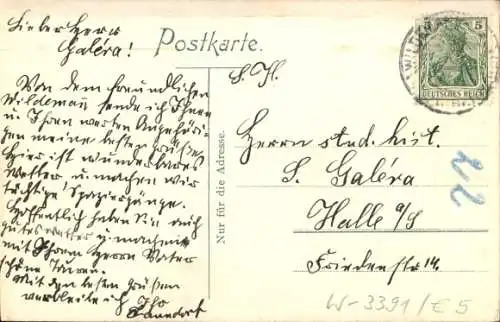 Lieber Herr
Galéra!
Postkarte.
Von dem freundlichen
Wildeman sende ich Ihnen
u Ihren werten Angehöri-
gen meine besten Grüße.
Hier ist wunderbares
Wetter u. machen wir
tüchtige Spaziergänge.
Hoffentlich haben Sie auch
gutes Wetter u. machen
mit Ihrem Herrn Vater
schöne Touren.
Mit den besten Grüßen
verbleibe ich Ihr
Nur für die Adresse.
5
DEUTSCHES REICH
S. Hl.
Herrn stud. hist.
S. Galéra
Halle a/S
Friedenstr 14
22
W-3391/E5